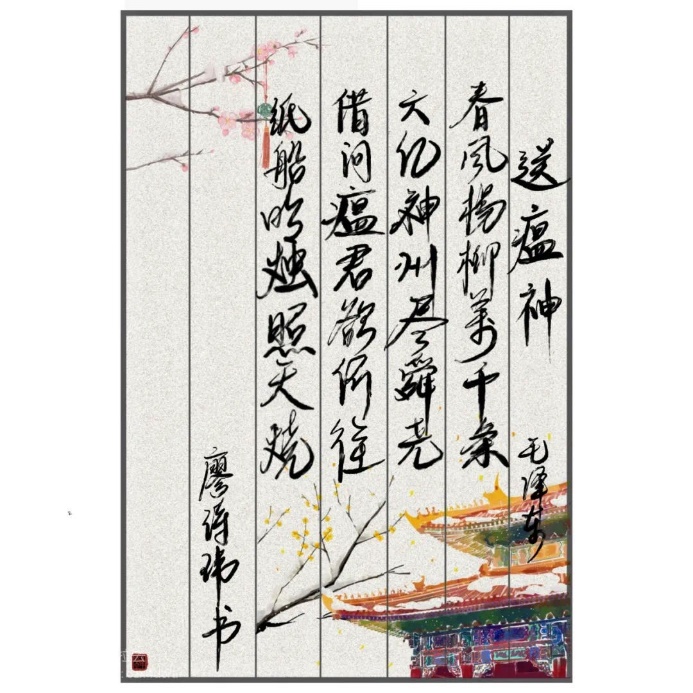 送瘟神
毛泽东
春风杨柳萬千条
六亿神州尽舜尧
借问瘟君欲何往
纸船明烛照天烧
廖玮书